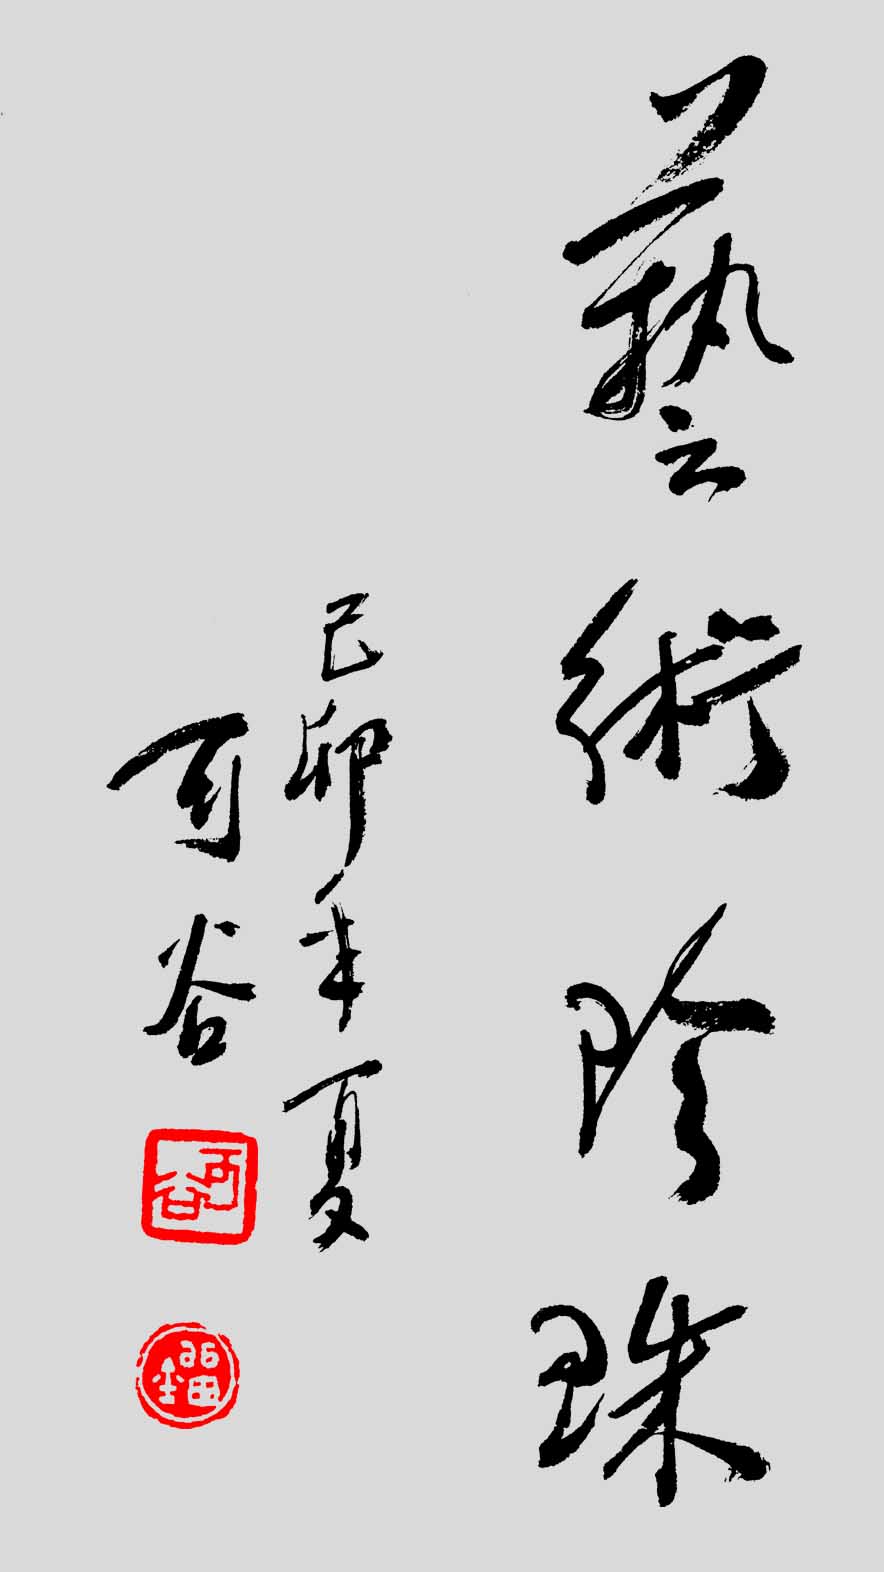 藝術珍珠
己卯年夏
可谷
可谷